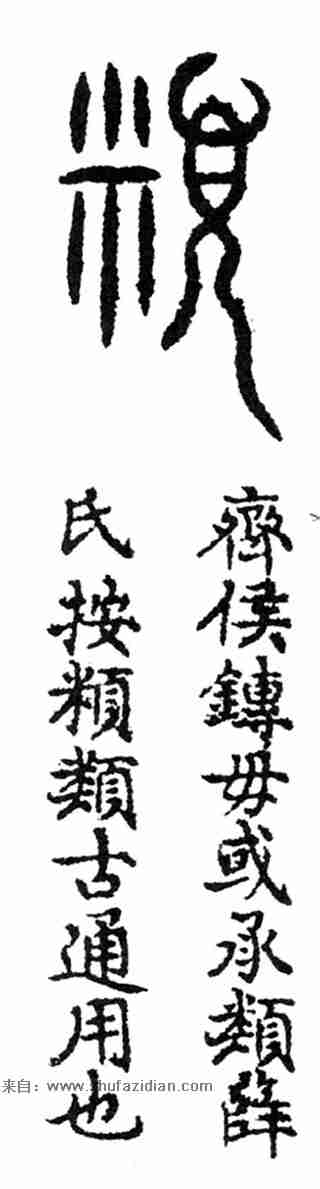 頪
齊侯鎛毋或承類薛
氏按頪類古通用也
来自：www.shufazidian.com